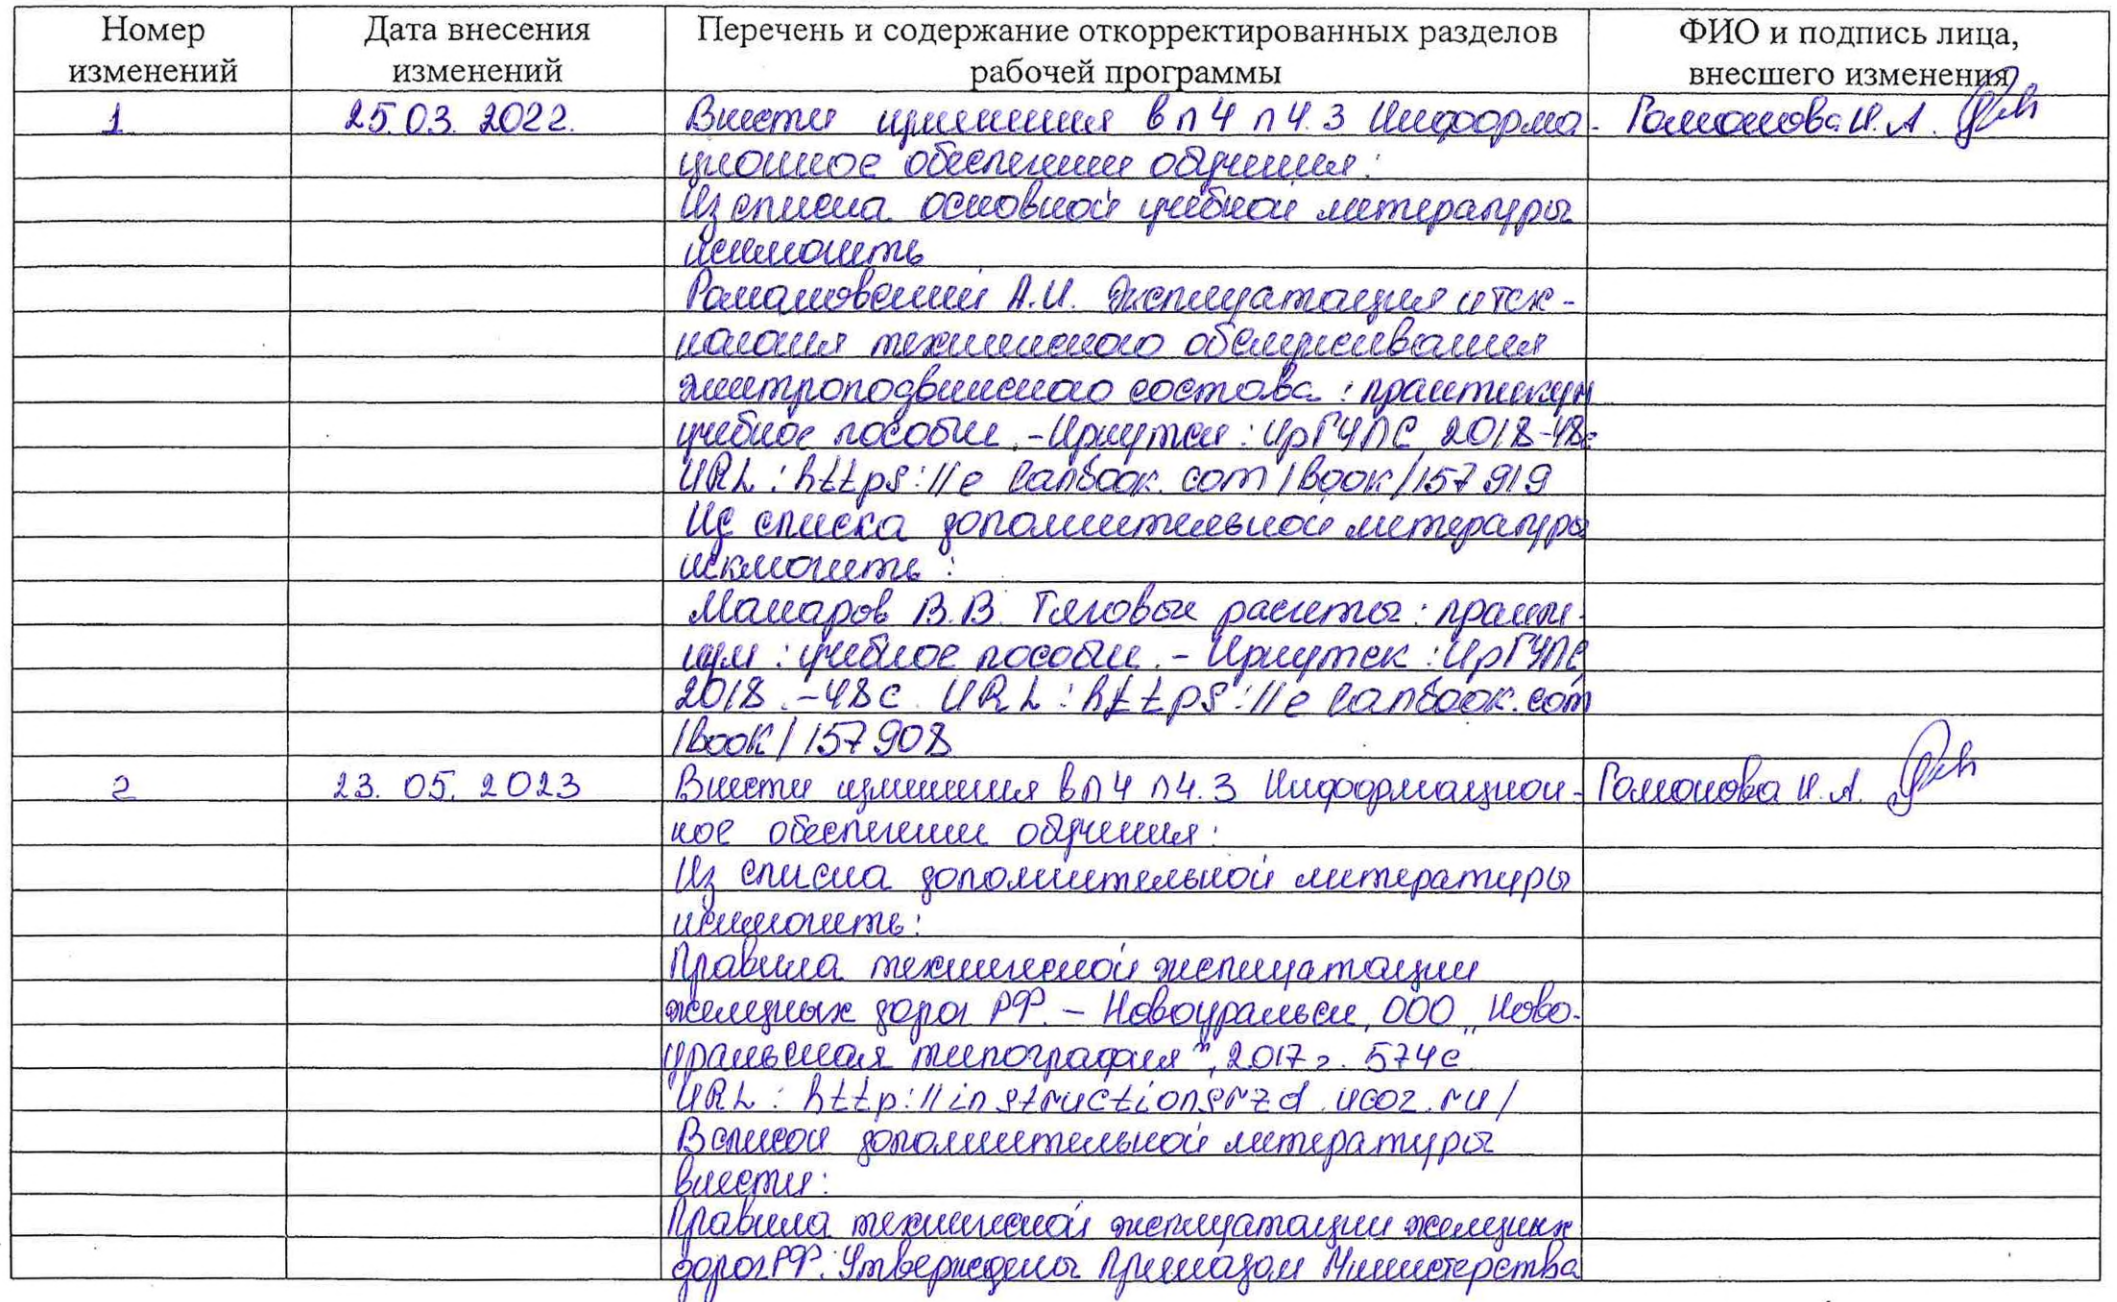 Номер изменений | Дата внесения изменений | Перечень и содержание откорректированных разделов рабочей программы | ФИО и подпись лица, внесшего изменения
1 | 25.03.2022. | Внести изменения в п 4 п 4.3 Информа- | И.А.
ционное обеспечение обучения:
Из списка основной учебной литературы
исключить
Романовский А.И. Эксплуатация и тех-
нология технического обслуживания
электроподвижного состава: практикум
учебное пособие. - Иркутск: ИрГУПС 2018-48с
URL: https://e lanbook.com/book/157919
Из списка дополнительной литературы
исключить:
Макаров В.В. Тяговые расчеты: практи-
кум: учебное пособие. - Иркутск: ИрГУПС
2018.-48с. URL: https://e lanbook.com
/book/157908
2 | 23.05.2023 | Внести изменения в п 4 п 4.3 Информацион- | И.А.
ное обеспечение обучения:
Из списка дополнительной литературы
исключить:
Правила технической эксплуатации
железных дорог РФ. - Новоуральск, ООО „Ново-
уральская типография", 2017г. 574с
URL: http://instructionsrzd.ucoz.ru/
В список дополнительной литературы
внести:
Правила технической эксплуатации железных
дорог РФ. Утверждены Приказом Министерства